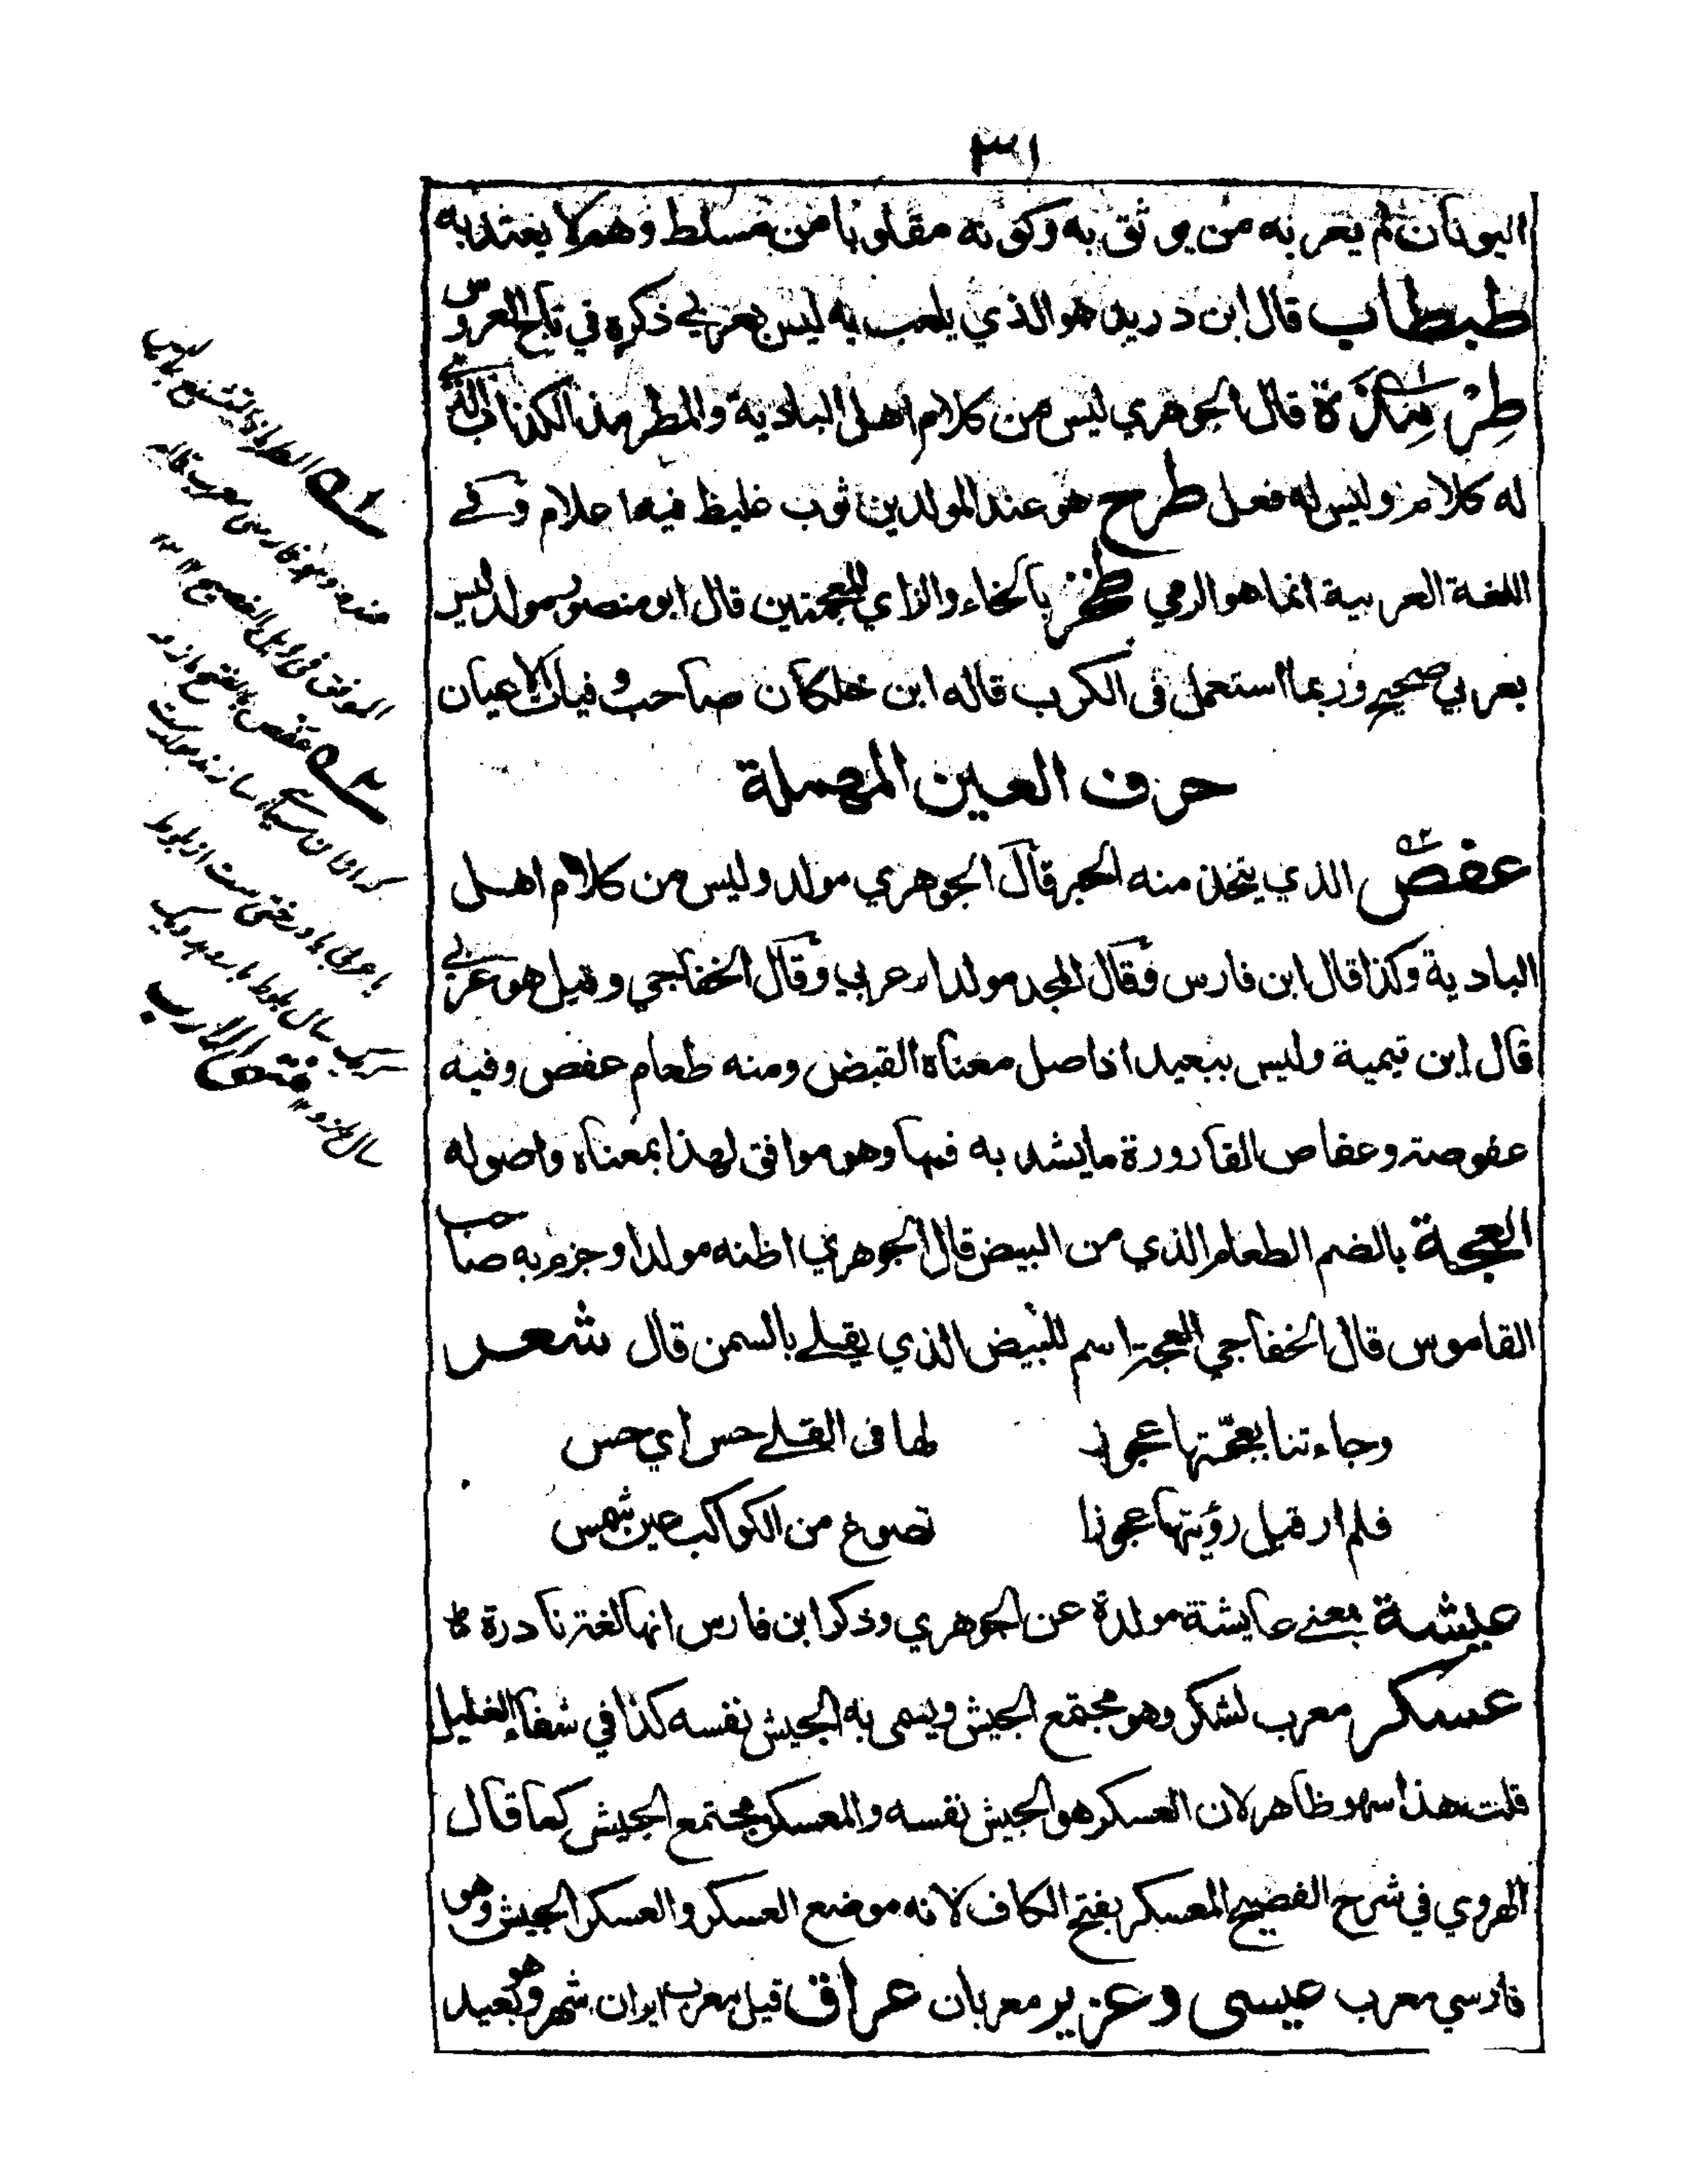 ٣١
اليونان لم يعربه من يوثق به وكونه مقلوبا من مسلط وهم لا يعتد به
طبطاب قال ابن دريد هو الذي يلعب به ليس بعربي ذكره في تاج العروس
قال الجوهري ليس من كلام اهل البادية والمطرمذ الكذاب الذي
له كلام وليس له فعل طرح هو عند المولدين ثوب غليظ فيه اعلام وفي
اللغة العربية انما هو الرمي طخز بالخاء والزاي المعجمتين قال ابو منصور مولد ليس
بعربي صحيح وربما استعمل في الكرب قاله ابن خلكان صاحب وفيات الاعيان
حرف العين المهملة
عفص الذي يتخذ منه الحبر قال الجوهري مولد وليس من كلام اهل
البادية وكذا قال ابن فارس وقال المجد مولد او عربي وقال الخفاجي وقيل هو عربي
قال ابن تيمية وليس ببعيد اذ اصل معناه القبض ومنه طعام عفص وفيه
عفوصة وعفاص القارورة ما يشد به فيها وهو موافق لهذا بمعناه واصوله
العجة بالضم الطعام الذي من البيض قال الجوهري اظنه مولدا وجزم به صاحب
القاموس قال الخفاجي العجة اسم للبيض الذي يقلے بالسمن قال شعر
وجاءتنا بعجتها عجوز لها في القلے حس اي حس
فلم ار قبل رؤيتها عجوزا تصوغ من الكواكب عين شمس
عيشة بمعنے عايشة مولدة عن الجوهري وذكر ابن فارس انها لغة نادرة
عسكر معرب لشكر وهو مجتمع الجيش ويسمى به الجيش نفسه كذا في شفاء الغليل
قلت هذا سهو ظاهر لان العسكر هو الجيش نفسه والمعسكر مجتمع الجيش كما قال
الهروي في شرح الفصيح المعسكر بفتح الكاف لانه موضع العسكر والعسكر الجيش وهو
فارسي معرب عيسى وعزير معربان عراق قيل معرب ايران شهر وهو بعيد
منتهى الارب